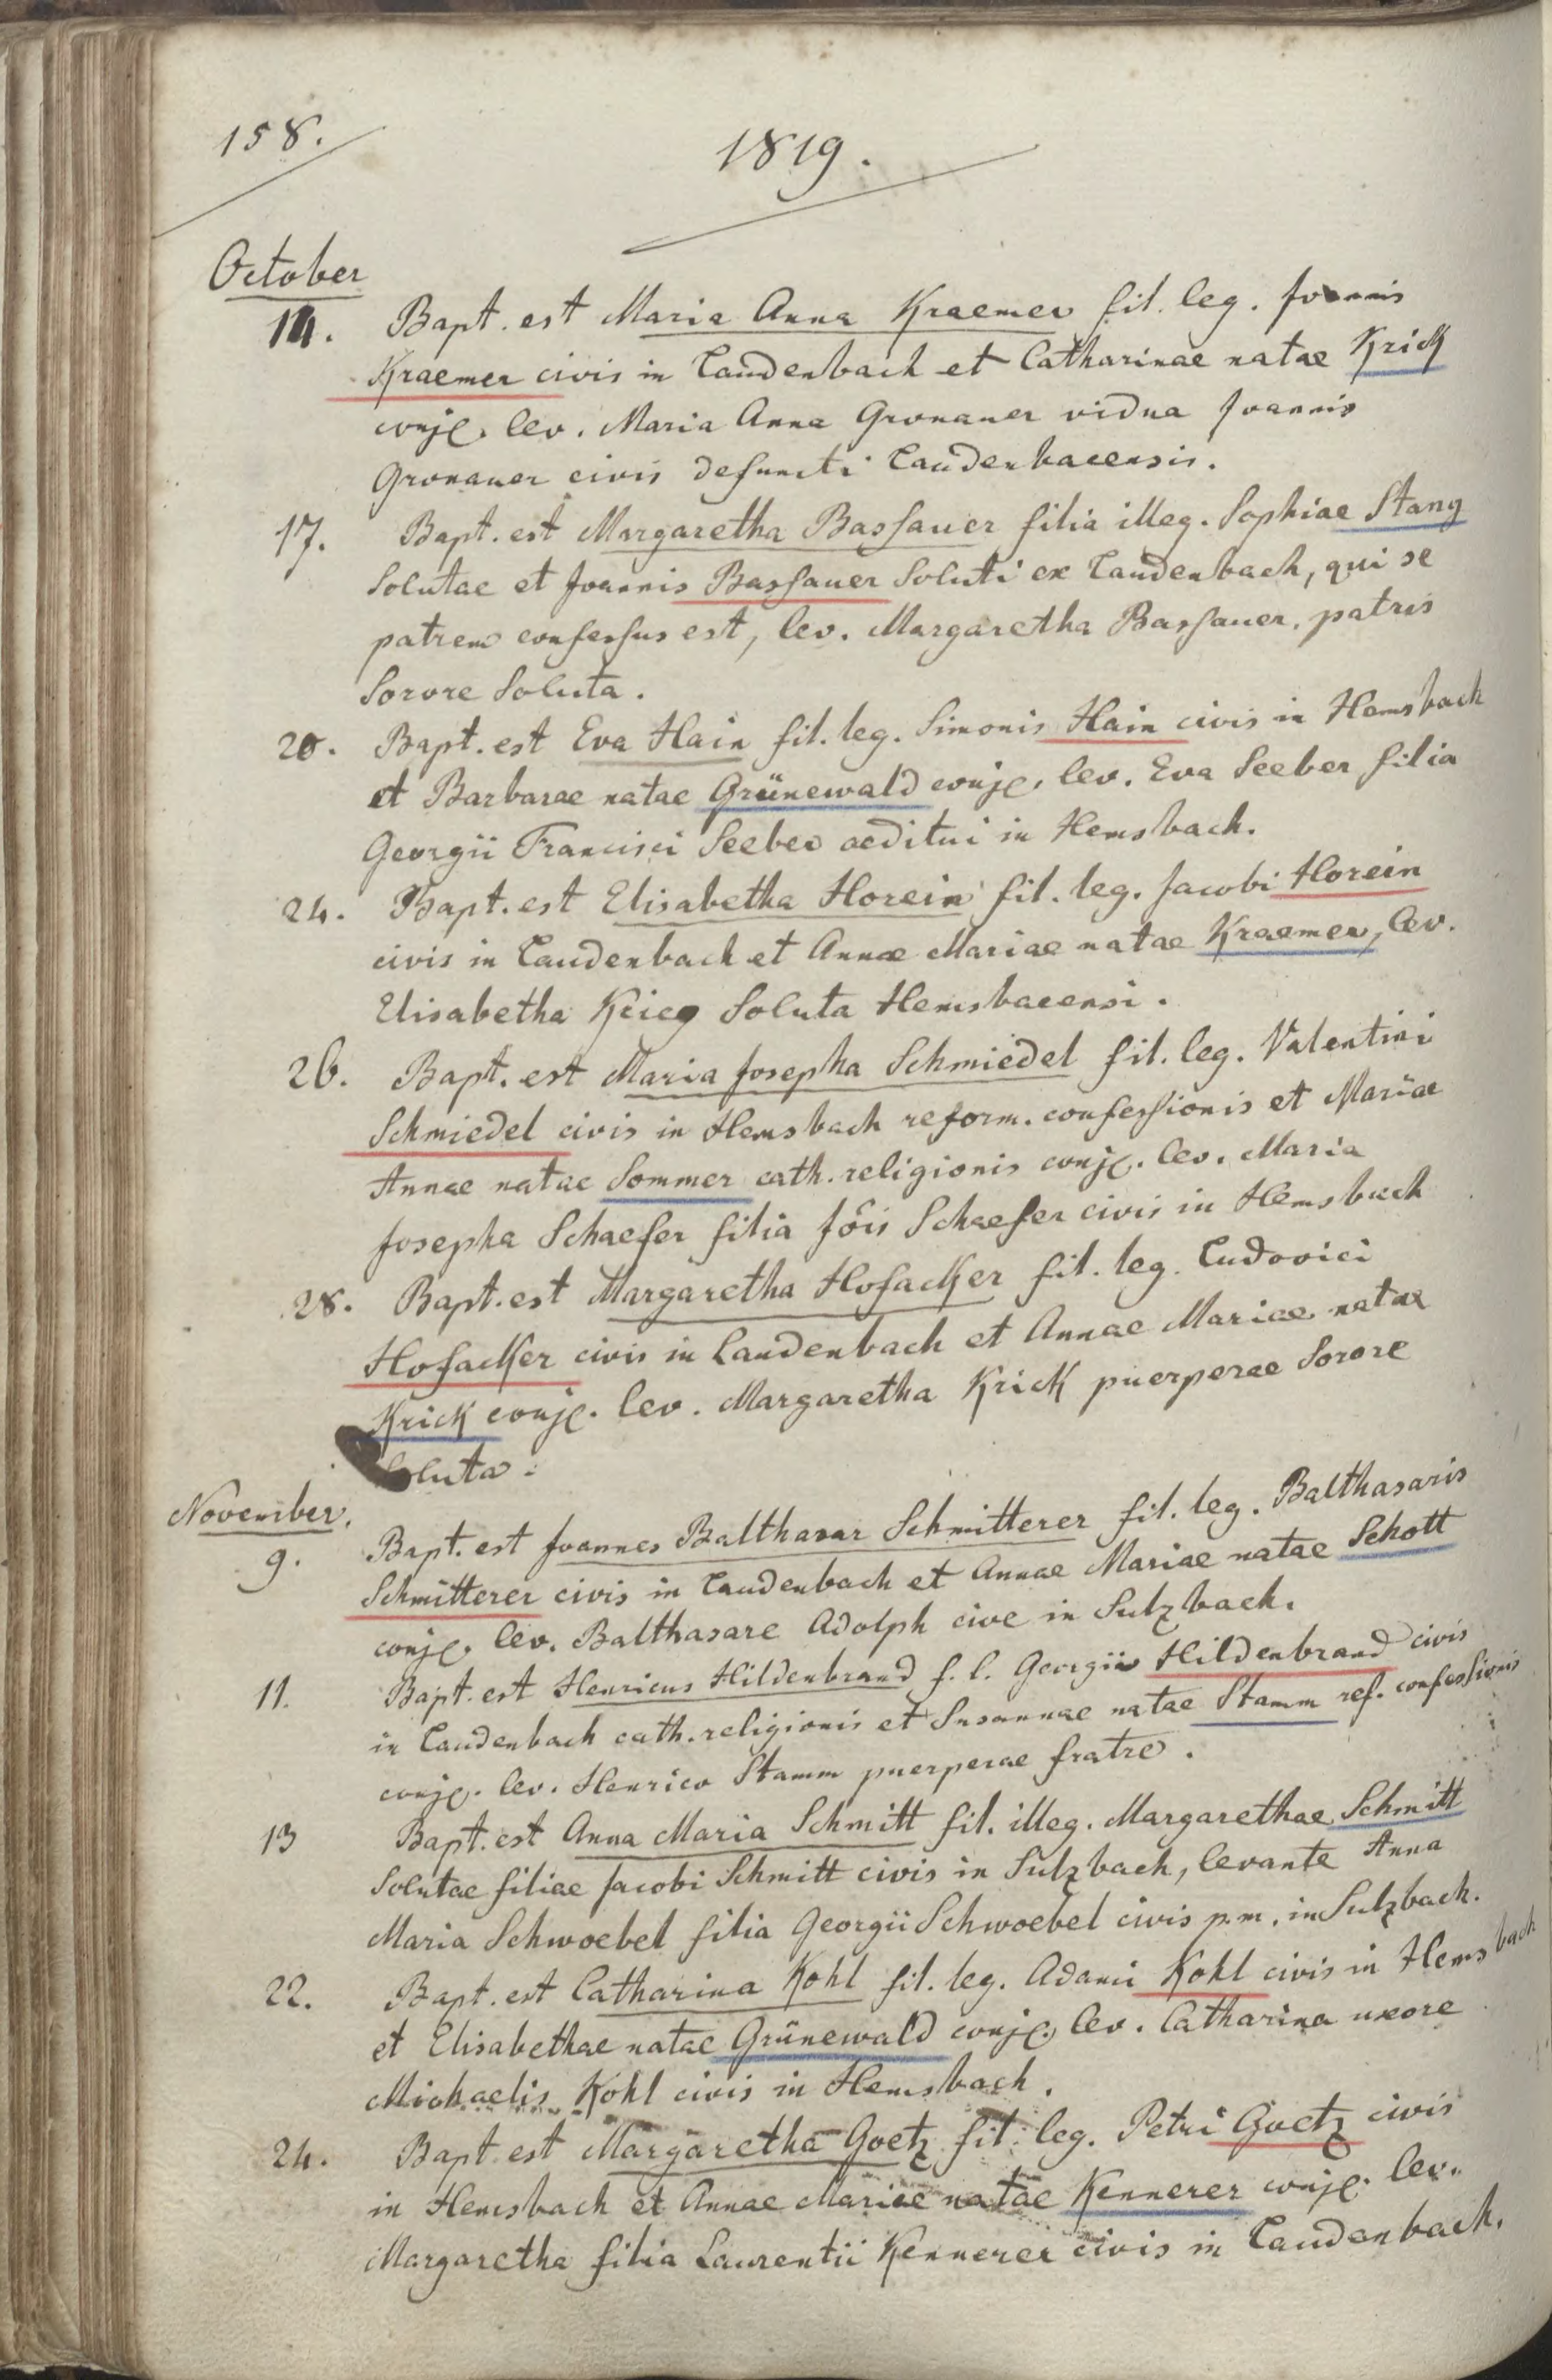 158.
1819.
October
14. Bapt. est Maria Anna Kraemer fil. leg. Joannis
Kraemer civis in Laudenbach et Catharinae natae Krick
conjg. lev. Maria Anna Gronauer vidua Joannis
Gronauer civis defuncti Laudenbacensis.
17. Bapt. est Margaretha Bassauer filia illeg. Sophiae Stang
Solutae et Joannis Bassauer Soluti ex Laudenbach, qui se
patrem confessus est, lev. Margaretha Bassauer, patris
Sorore Soluta.
20. Bapt. est Eva Hain fil. leg. Simonis Hain civis in Hemsbach
et Barbarae natae Grünewald conjg. lev. Eva Seeber filia
Georgii Francisci Seeber aeditui in Hemsbach.
24. Bapt. est Elisabetha Horein fil. leg. Jacobi Horein
civis in Laudenbach et Annae Mariae natae Kraemer, lev.
Elisabetha Soluta Hemsbacensi.
26. Bapt. est Maria Josepha Schmiedel fil. leg. Valentini
Schmiedel civis in Hemsbach reform. confessionis et Mariae
Annae natae Sommer cath. religionis conjg. lev. Maria
Josepha Schaefer filia Jois Schaefer civis in Hemsbach
28. Bapt. est Margaretha Hofacker fil. leg. Ludovici
Hofacker civis in Laudenbach et Annae Mariae natae
Krick conjg. lev. Margaretha Krick puerperae Sorore
Soluta.
November.
9. Bapt. est Joannes Balthasar Schmitterer fil. leg. Balthasaris
Schmitterer civis in Laudenbach et Annae Mariae natae Schott
conjg. lev. Balthasare Adolph cive in Sulzbach.
11. Bapt. est Henricus Hildenbrand f. l. Georgii Hildenbrand civis
in Laudenbach cath. religionis et Susannae natae Stamm ref. confessionis
conjg. lev. Henrico Stamm puerperae fratre.
13 Bapt. est Anna Maria Schmitt fil. illeg. Margarethae Schmitt
Solutae filiae Jacobi Schmitt civis in Sulzbach, levante Anna
Maria Schwoebel filia Georgii Schwoebel civis p.m. in Sulzbach.
22. Bapt. est Catharina Kohl fil. leg. Adami Kohl civis in Hemsbach
et Elisabethae natae Grünewald conjg. lev. Catharina uxore
Michaelis Kohl civis in Hemsbach.
24. Bapt. est Margaretha Goetz fil. leg. Petri Goetz civis
in Hemsbach et Annae Mariae natae Kennerer conjg. lev.
Margaretha filia Laurentii Kennerer civis in Laudenbach.